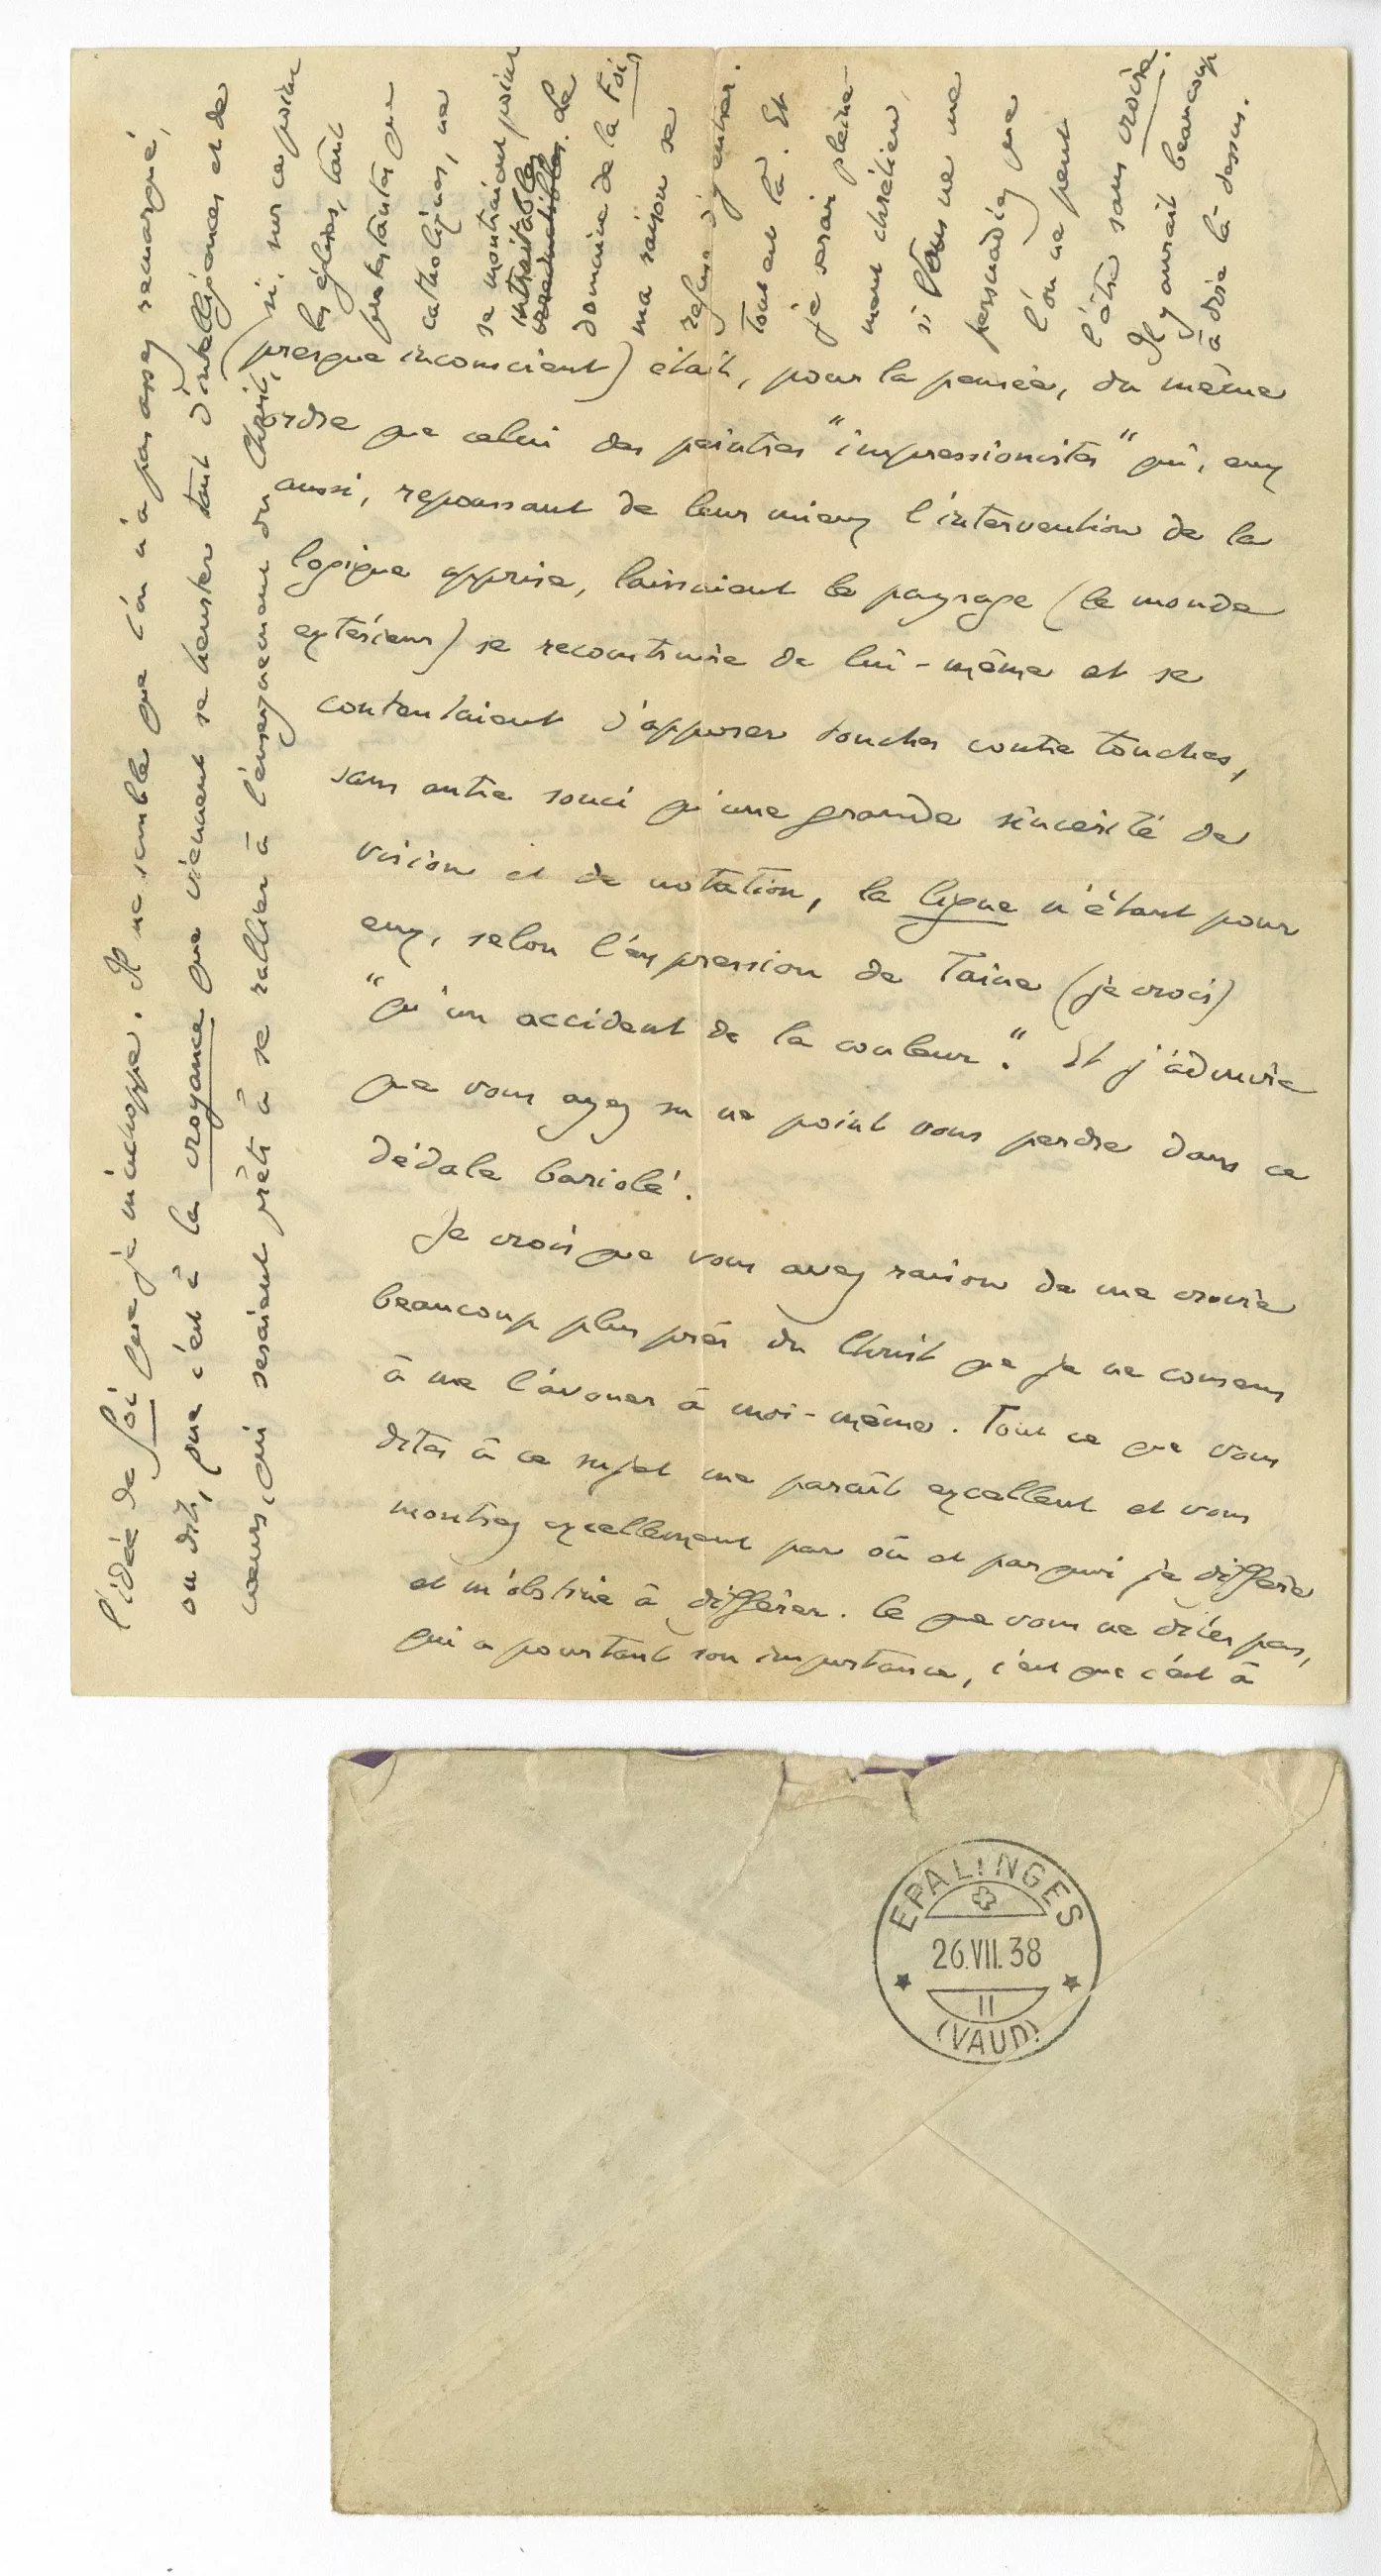 (presque inconscient) était, pour la pensée, du même
ordre que celui des peintres "impressionistes" qui, eux
aussi, repoussant de leur mieux l'intervention de la
logique apprise, laissaient le paysage (le monde
extérieur) se reconstruire de lui-même et se
contentaient d'apposer touches contre touches,
sans autre souci qu'une grande sincérité de
vision et de notation, la ligne n'étant pour
eux, selon l'expression de Taine (je crois)
"qu'un accident de la couleur". Et j'admire
que vous ayez su ne point vous perdre dans ce
dédale bariolé.
Je crois que vous avez raison de me croire
beaucoup plus près du Christ que je ne consens
à me l'avouer à moi-même. Tout ce que vous
dites à ce sujet me paraît excellent et vous
montrez excellemment par où et par quoi je diffère
et m'obstine à différer. Ce que vous ne dites pas,
qui a pourtant son importance, c'est que c'est à
l'idée de foi que je m'achoppe. Il me semble que l'on n'a pas assez remarqué,
ou dit, que c'est à la croyance que viennent se heurter tant d'intelligences et de
cœurs, qui seraient prêts à se rallier à l'enseignement du Christ,
si, sur ce point
les églises, tant
protestantes que
catholiques, ne
se montraient point
intraitables
irréductibles. Le
domaine de la Foi,
ma raison se
refuse d'y entrer.
Tout est là. Et
je serais pleine-
ment chrétien,
si Vous ne me
persuadiez que
l'on ne peut
l'être sans croire.
Il y aurait beaucoup
à dire là-dessus.
EPALINGES
26.VII.38
II
(VAUD)